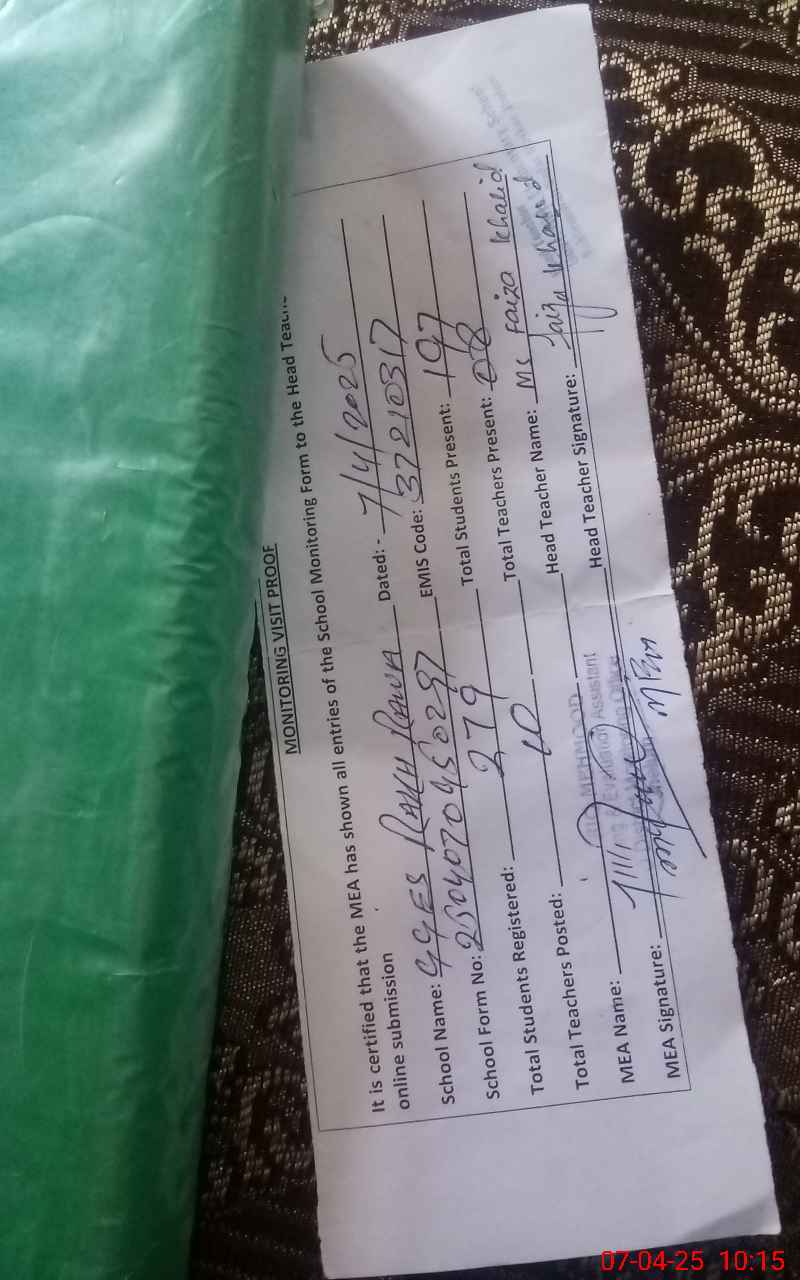 MONITORING VISIT PROOF
It is certified that the MEA has shown all entries of the School Monitoring Form to the Head
online submission
School Name: GGES RAKH RAWA Dated: - 7/4/2025
School Form No: 2504070450297 EMIS Code: 37210317
Total Students Registered: 279 Total Students Present: 197
Total Teachers Posted: 10 Total Teachers Present: 08
MEA Name: Head Teacher Name: Ms Faiza Khalid
MEA Signature: Head Teacher Signature: Faiza Khalid
MEHMOOD
Evaluation Assistant
07-04-25 10:15